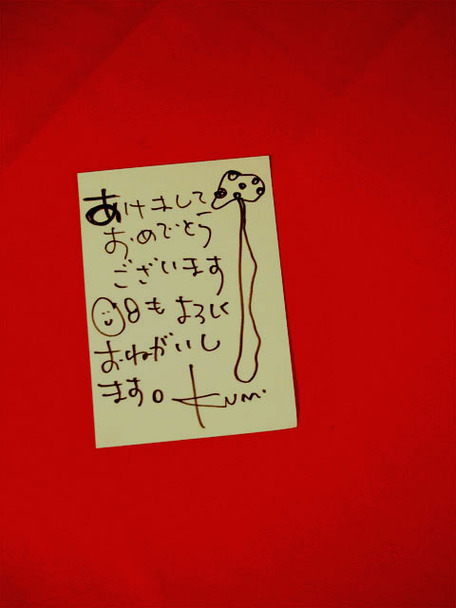 あけまして
おめでとう
ございます
08も よろしく
おねがいし
ます。
Kumi